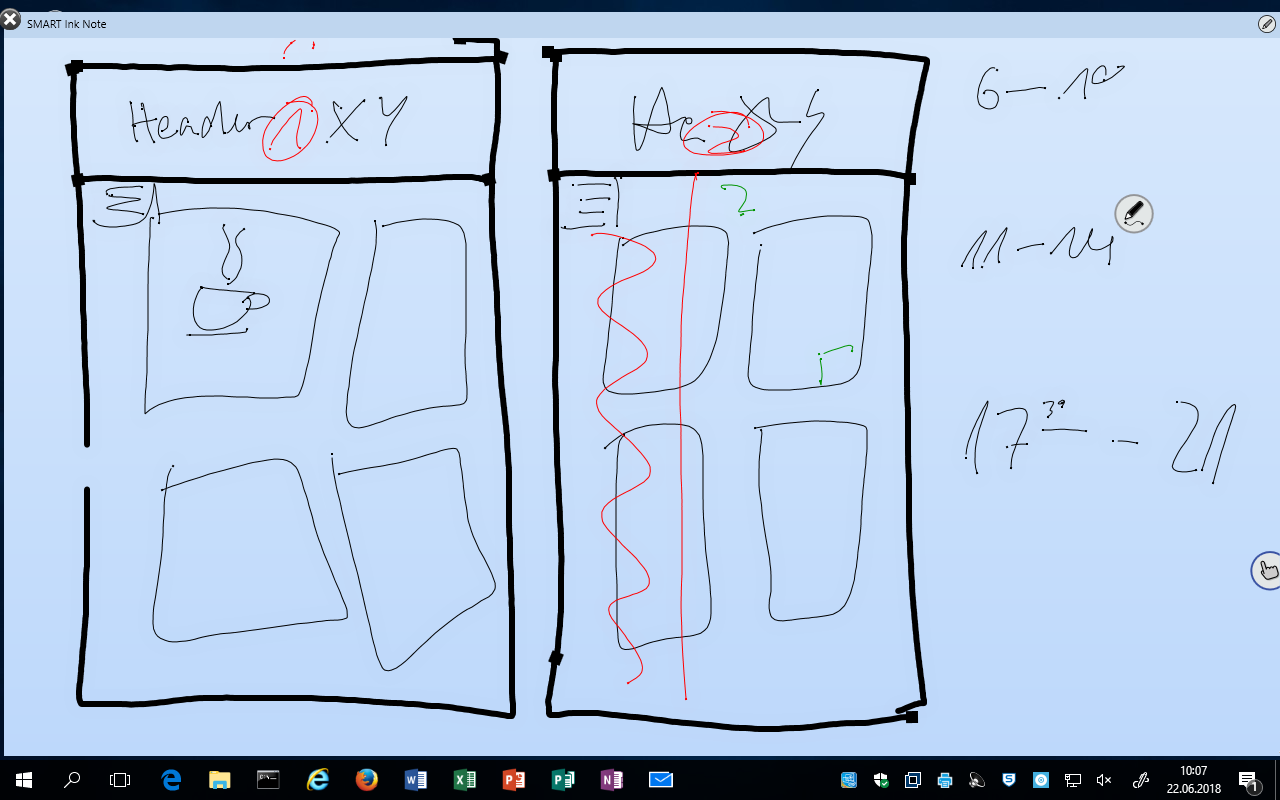 SMART Ink Note
Header 1 XY
2
2
6 - 10
11 - 14
17 30 - 21
10:07
22.06.2018
1